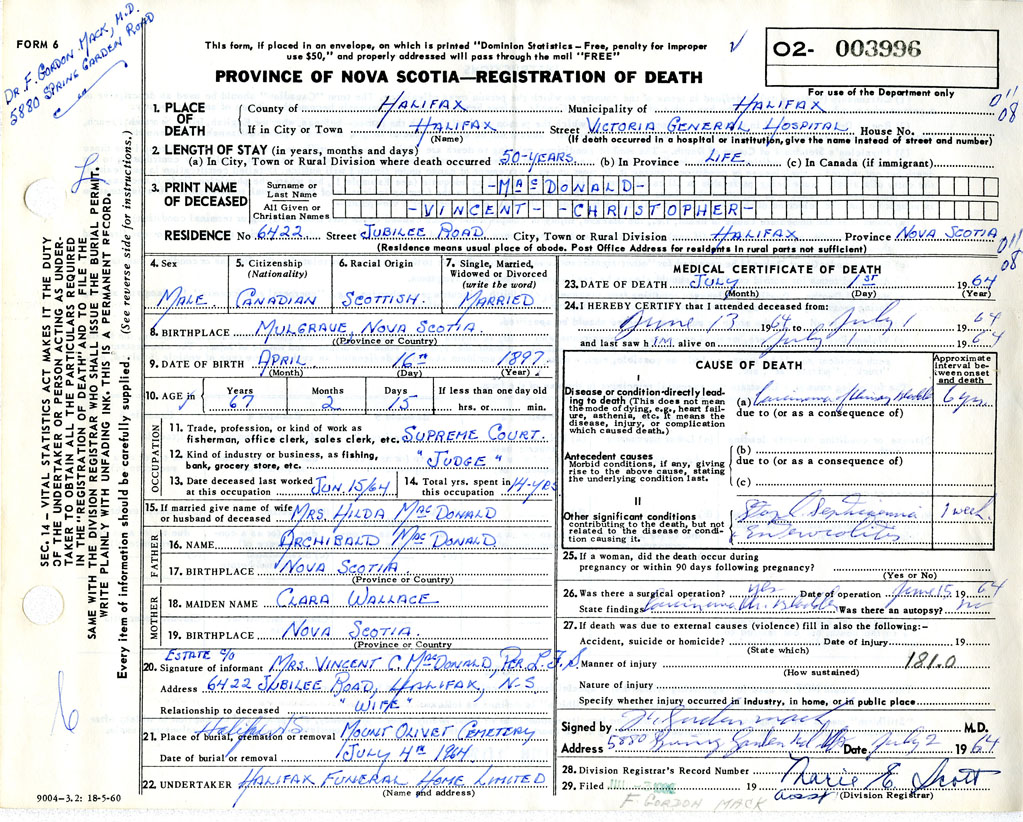 FORM 6
Dr. F. Gordon Mack, M.D.
5880 Spring Garden Road
This form, if placed in an envelope, on which is printed "Dominion Statistics – Free, penalty for improper
use $50," and properly addressed will pass through the mail "FREE"
PROVINCE OF NOVA SCOTIA—REGISTRATION OF DEATH
02- 003996
For use of the Department only
011
08
1. PLACE OF DEATH
County of Halifax Municipality of Halifax
If in City or Town Halifax Street Victoria General Hospital House No.
(Name) (If death occurred in a hospital or institution, give name instead of street and number)
2. LENGTH OF STAY (in years, months and days)
(a) In City, Town or Rural Division where death occurred 50-years (b) In Province Life (c) In Canada (if immigrant)
3. PRINT NAME OF DECEASED
Surname or Last Name -MacDonald-
All Given or Christian Names -Vincent- -Christopher-
RESIDENCE No 6422 Street Jubilee Road City, Town or Rural Division Halifax Province Nova Scotia
(Residence means usual place of abode. Post Office Address for residents in rural parts not sufficient)
011
08
4. Sex
Male
5. Citizenship (Nationality)
Canadian
6. Racial Origin
Scottish
7. Single, Married, Widowed or Divorced (write the word)
Married
8. BIRTHPLACE Mulgrave, Nova Scotia
(Province or Country)
9. DATE OF BIRTH April 16th 1897
(Month) (Day) (Year)
10. AGE in Years 67 Months 2 Days 15 If less than one day old hrs. or min.
OCCUPATION
11. Trade, profession, or kind of work as
fisherman, office clerk, sales clerk, etc. Supreme Court.
12. Kind of industry or business, as fishing,
bank, grocery store, etc. "Judge"
13. Date deceased last worked at this occupation Jun. 15/64
14. Total yrs. spent in this occupation 14-yrs
15. If married give name of wife
or husband of deceased Mrs. Hilda MacDonald
FATHER
16. NAME Archibald MacDonald
17. BIRTHPLACE Nova Scotia
(Province or Country)
MOTHER
18. MAIDEN NAME Clara Wallace
19. BIRTHPLACE Nova Scotia
(Province or Country
Estate c/o
20. Signature of informant Mrs. Vincent C. MacDonald, Per L.F.S.
Address 6422 Jubilee Road, Halifax, N-S
Relationship to deceased "Wife"
21. Place of burial, cremation or removal Halifax NS Mount Olivet Cemetery
Date of burial or removal July 4th 1964
22. UNDERTAKER Halifax Funeral Home Limited
(Name and address)
MEDICAL CERTIFICATE OF DEATH
23. DATE OF DEATH July 1st 1964
(Month) (Day) (Year)
24. I HEREBY CERTIFY that I attended deceased from:
June 13 1964 to July 1 1964
and last saw him alive on July 1 1964
CAUSE OF DEATH
Approximate interval between onset and death
I
Disease or condition directly leading to death (This does not mean the mode of dying, e.g., heart failure, asthenia, etc. It means the disease, injury, or complication which caused death.)
(a) Carcinoma of Urinary Bladder 6 yrs.
due to (or as a consequence of)
Antecedent causes
Morbid conditions, if any, giving rise to the above cause, stating the underlying condition last.
(b)
due to (or as a consequence of)
(c)
II
Other significant conditions
contributing to the death, but not related to the disease or condition causing it.
Septicaemia 1 week
Enterocolitis
25. If a woman, did the death occur during
pregnancy or within 90 days following pregnancy?
(Yes or No)
26. Was there a surgical operation? yes Date of operation June 15 1964
State findings Carcinoma Ur. Bladder Was there an autopsy? no
27. If death was due to external causes (violence) fill in also the following:-
Accident, suicide or homicide? Date of injury 19
(State which)
Manner of injury 181.0
(How sustained)
Nature of injury
Specify whether injury occurred in industry, in home, or in public place
Signed by F. Gordon Mack M.D.
Address 5880 Spring Garden Rd Date July 2 1964
28. Division Registrar's Record Number
29. Filed Marie E. Scott
asst (Division Registrar)
F. GORDON MACK
9004-3.2: 18-5-60
SEC. 14 – VITAL STATISTICS ACT MAKES IT THE DUTY
OF THE UNDERTAKER OR PERSON ACTING AS UNDER-
TAKER TO OBTAIN ALL THE PARTICULARS REQUIRED
IN THE "REGISTRATION OF DEATH" AND TO FILE THE
SAME WITH THE DIVISION REGISTRAR WHO SHALL ISSUE THE BURIAL PERMIT.
WRITE PLAINLY WITH UNFADING INK. THIS IS A PERMANENT RECORD.
Every item of information should be carefully supplied. (See reverse side for instructions.)
6